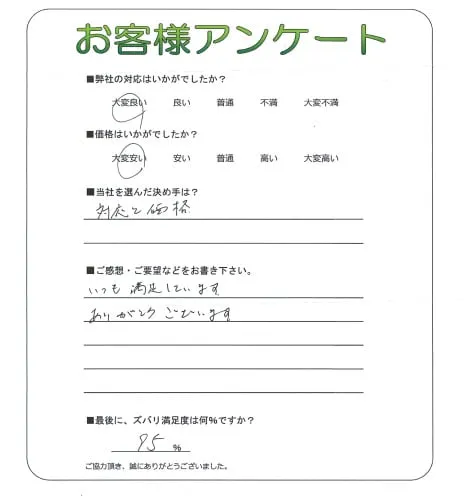 お客様アンケート
■弊社の対応はいかがでしたか?
大変良い 良い 普通 不満 大変不満
■価格はいかがでしたか?
大変安い 安い 普通 高い 大変高い
■当社を選んだ決め手は?
対応と価格
■ご感想・ご要望などをお書き下さい。
いつも満足しています
ありがとうございます
■最後に、ズバリ満足度は何%ですか?
95 %
ご協力頂き、誠にありがとうございました。